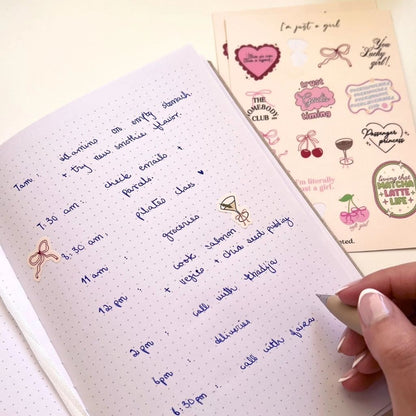 7am : vitamins on empty stomach
+ try new smoothie flavor.
7:30 am : check emails +
parcals.
8:30 am : pilates class ♥
11 am : groceries
12 pm : cook salmon
+ vegies + chia seed pudding
2 pm : call with thadja
6pm : deliveries
6:30 pm : call with faiza
I'm just a girl
You
Lucky
girl!
trust
God's
timing
THE
HOMEBODY
CLUB
Passenger
princess
I'm literally
just a girl.
living that
MATCHA
LATTE
LIFE